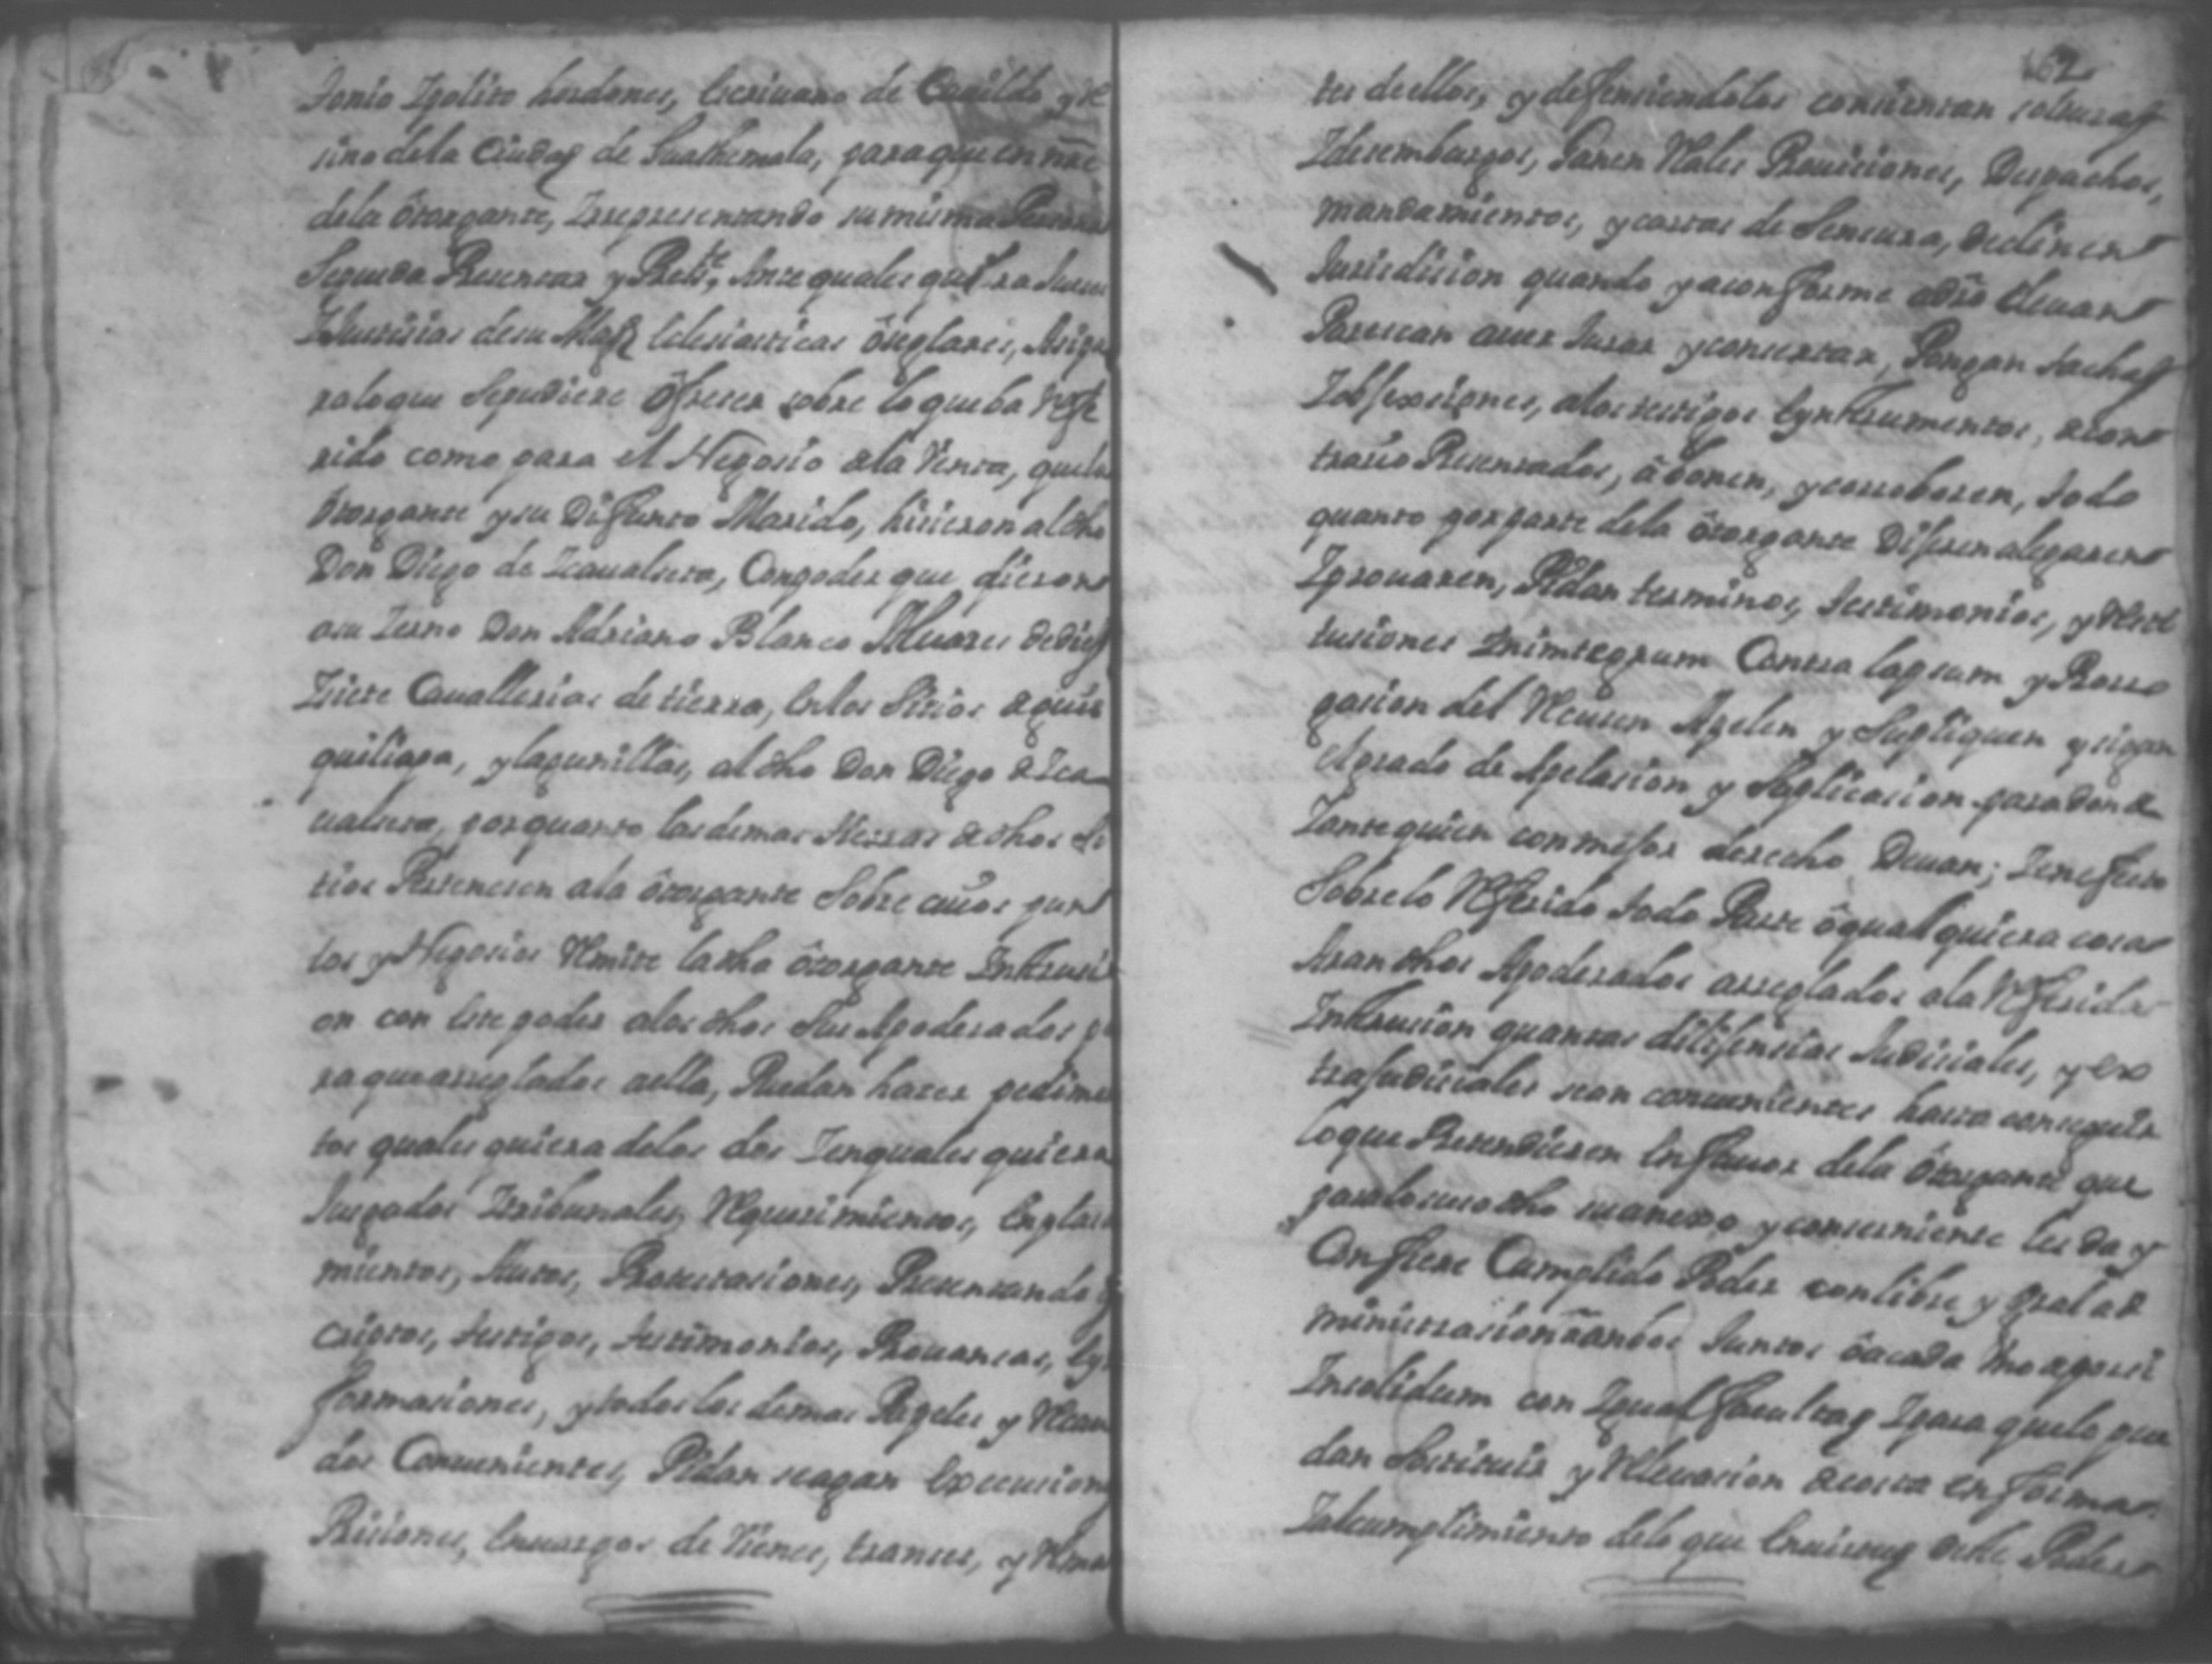 tonio Ypolito hordones, Escriuano de Cauildo y Ve
sino dela Ciudad de Guathemala, paraque en nre
dela ôtorgante, Yrrepresentando su misma Persona
Segunda Presencia y
Yjusticias desu Magd Eclesiasticas ôseglares, Asi pa
ralo que Sepudiere ôfrecer sobre lo queba Refe
rido como para el Negocio dela Venta, quela
ôtorgante y su Difunto Marido, hicieron al dho
Don Diego de Con poder que dieron
a su Yerno Don Adriano Blanco Aluares de dies
Ysiete Cauallerias de tierra, En los Sitios de
y lagunillas, al dho Don Diego de
por quanto las demas tierras de dhos Si
tios Pertenesen ala ôtorgante Sobre cuios pun
tos y Negocios Remite la dha ôtorgante Instrucci
on con este poder alos dhos Sus Apoderados pa
ra que arreglados aella, Puedan hacer pedimen
tos quales quiera delos dos Yenquales quiera
Jusgados Ytribunales, Requerimientos, Emplasa
mientos, Autos, Protestaciones, Presentando es
criptos, testigos, testimonios, Prouansas, Eyn
formaciones, y todos los demas Papeles y Recau
dos Conuenientes, Pidan se agan Execuciones
Priciones, Embargos de Vienes, transes, y Rema
62
tes de ellos, y defensiendolos consientan solturas
Ydesembargos, Ganen Reales Prouiciones, Despachos,
mandamientos, y cartas de Sensura, declinen
Jurisdicion quando y aconforme adro deuan
Paresean auer Juras y consertar, Pongan tachas
Yobjexciones, alos testigos Eynstrumentos, de con
trario Presentados, âbonen, y corroboren, todo
quanto por parte dela ôtorgante Dijeren alegaren
Yprouaren, Pidan terminos, testimonios, y Resti
tuciones Ynintegrum Contra lapsum y Prorro
gacion del Recusen Apelen y Supliquen y sigan
el grado de Apelacion y Suplicacion para donde
Yante quien con mejor derecho Deuan; Yenefecto
Sobre lo Referido todo Parte ôqualquiera cosa
Aran dhos Apoderados arreglados ala Referida
Ynstrucion quantas dilijencias Judiciales, y ex
trajudiciales sean conuenientes hasta conseguir
lo que Pretendieren En fauor dela ôtorgante que
para lo suso dho y conserniente les da y
Confiere Cumplido Poder con libre y gral ad
ministracion âambos Juntos ôacada Vno de por si
Ynsolidum con Ygual facultad Ypara quelo pue
dan Sostituir y Releuacion de costa en forma.
Yalcumplimiento delo que En virtud deste Poder